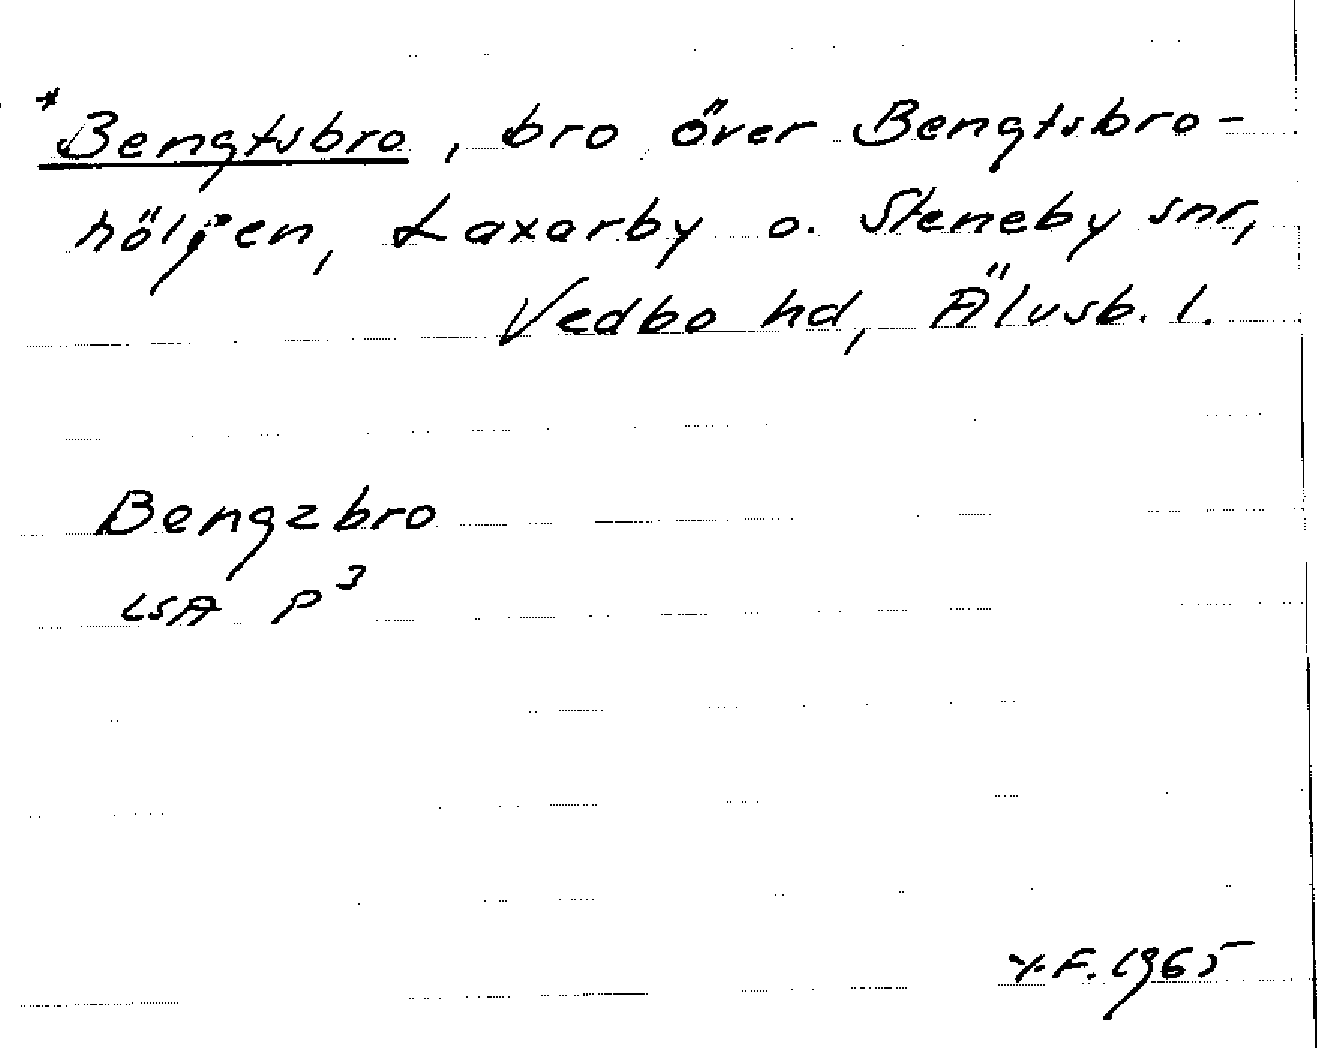 *Bengtsbro, bro över Bengtsbro-
höljen, Laxarby o. Steneby snr,
Vedbo hd, Älvsb. l.
Bengzbro
LSA P³
Y.F. 1965